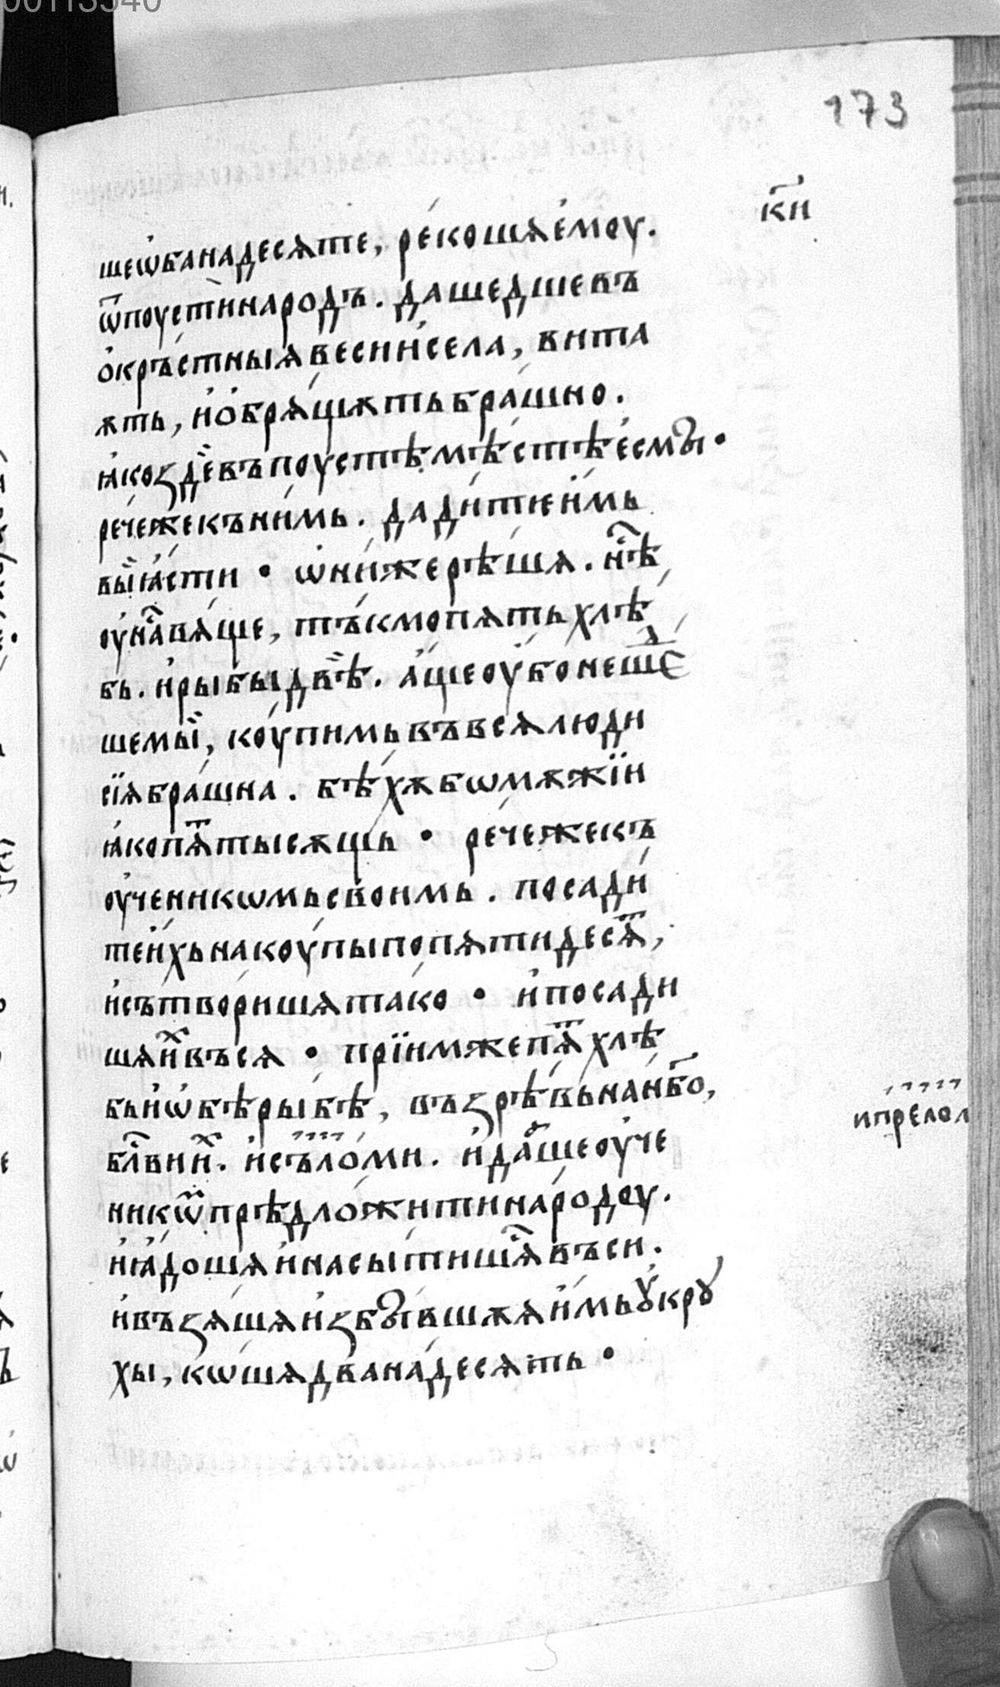 00113540
173
к҃и
шеѡ̓банадесѧте, реко́шѧе́моу.
ѿпоусти́народъ. дашедшевъ
ѻ҆кръ́стныѧве́сиисе́ла, вита
ѫть, ѝо́брѧщѫтьбра́шно.
ꙗ҆коздѐвъпоу́стѣмѣ́стѣе҆смы̀ •
рече́жекъни́мь. дади́теи҆мь
вы̀ꙗ҆́сти • ѡ҆ни́жерѣ́шѧ. нⷭ҇ѣ
оу҆на́свѧ́ще, тъ́кмопѧтьхлѣ́
бь. и҆ры́быдвѣ̀. а҆́щеоу҆́боне́шⷣе
шемы̀, коу́пимьвъвсѧлю́ди
сїѧбра́шна. бѣ́хѫбѡмѫ́жїи
ꙗ҆копѧⷮ́тысѫщь • рече́жекъ
оу҆ченикѡмьсвои́мь. посади́
теи҆́хьнакоу́пыпопѧтидесѧⷮ,
и҆сътвори́шѧта́ко • и҆посади
шѧи҆ⷯвъсѧ • прїи́мжепѧⷮхлѣ́
бьи҆ѡ҆́бѣры́бѣ, въ́зрѣ́вьнан҃бо,
бл҃вии҆ⷯ. и҆съло́ми. и҆даꙗ́шеоу҆че
никѡⷨпрѣдложи́тинаро́доу.
и҆ꙗ҆́дошѧи҆насы́тишѧⷭвъси.
и҆въ́зѧ́шѧи҆збы́вшѫѧи҆мьоу҆кроу́
хы, кѡ́шѧдвана́десѧть •
ипрелол